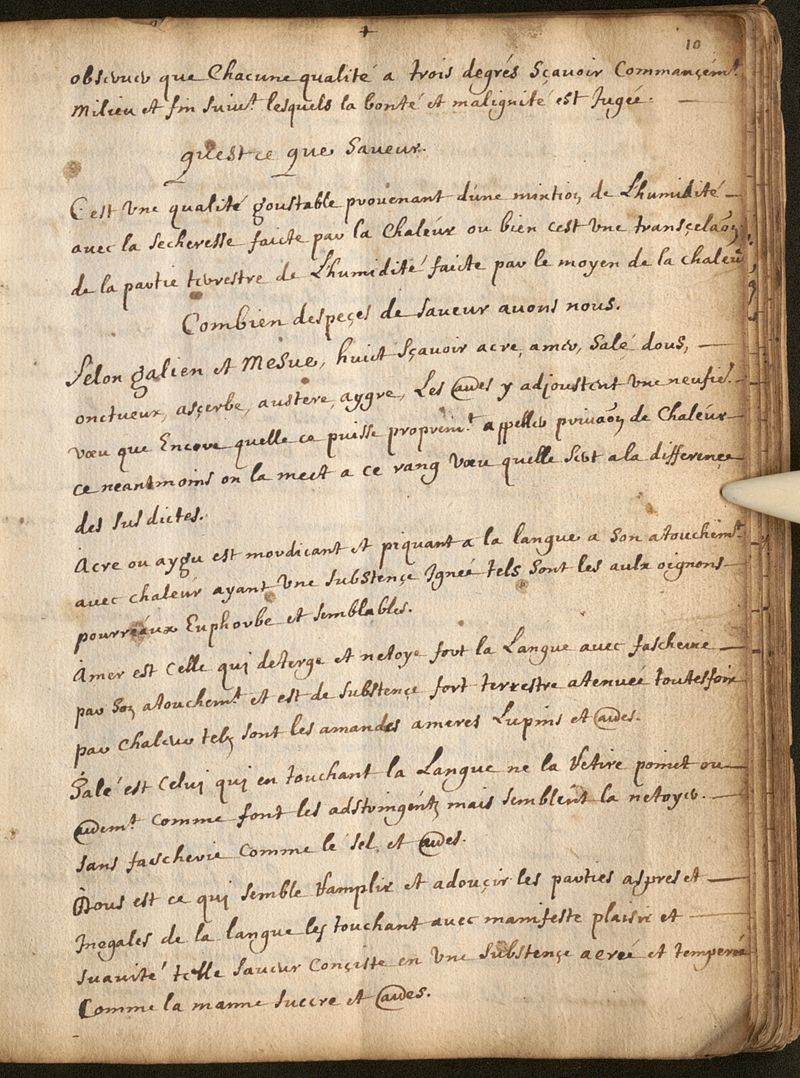 10
obseruer que Chacune qualité a trois degrés Sçauoir Commançem.t
Milieu et fin suiu.t lesquels la bonté et malignité est Jugée.
quest ce que Saueur.
C'est Vne qualité goustable prouenant dune mixtion de Lhumidité
auec la secheresse faicte par la Chaleur ou bien cest Vne
de la partie terrestre de Lhumidité faicte par le moyen de la chaleur
Combien despeçes de saueur auons nous.
Selon galien et Mesue, huict Sçauoir acre, amer, Salé dous,
onctueux, asçerbe, austere, aygre, Les y adjoustent Vne neufie.
vœu que Encore quelle ce puisse proprem.t appeller priuaõn de Chaleur
ce neantmoins on la mect a ce rang vœu quelle sert a la differençe
des sus dictes.
Acre ou aygu est mordicant et piquant a la langue a Son atouchem.t
auec chaleur ayant Vne substençe Ignée tels Sont les aulx oignons
pourreaux Euphorbe et semblables.
Amer est Celle qui deterge et netoye fort la Langue auec fascherie
par Son atouchem.t et est de substençe fort terrestre atenuée toutesfois
par Chaleur telz sont les amandes ameres Lupins et
Salé est Celui qui en touchant la Langue ne la retire poinct ou
Comme font les adstringentz mais semblent la netoyer.
sans fascherie Comme le sel, et
Dous est ce qui semble ramplir et adouçir les parties aspres et
Inegales de la langue les touchant auec manifeste plaisir et
suauité telle saueur Conçiste en Vne substençe aereé et temperée
Comme la manne succre et